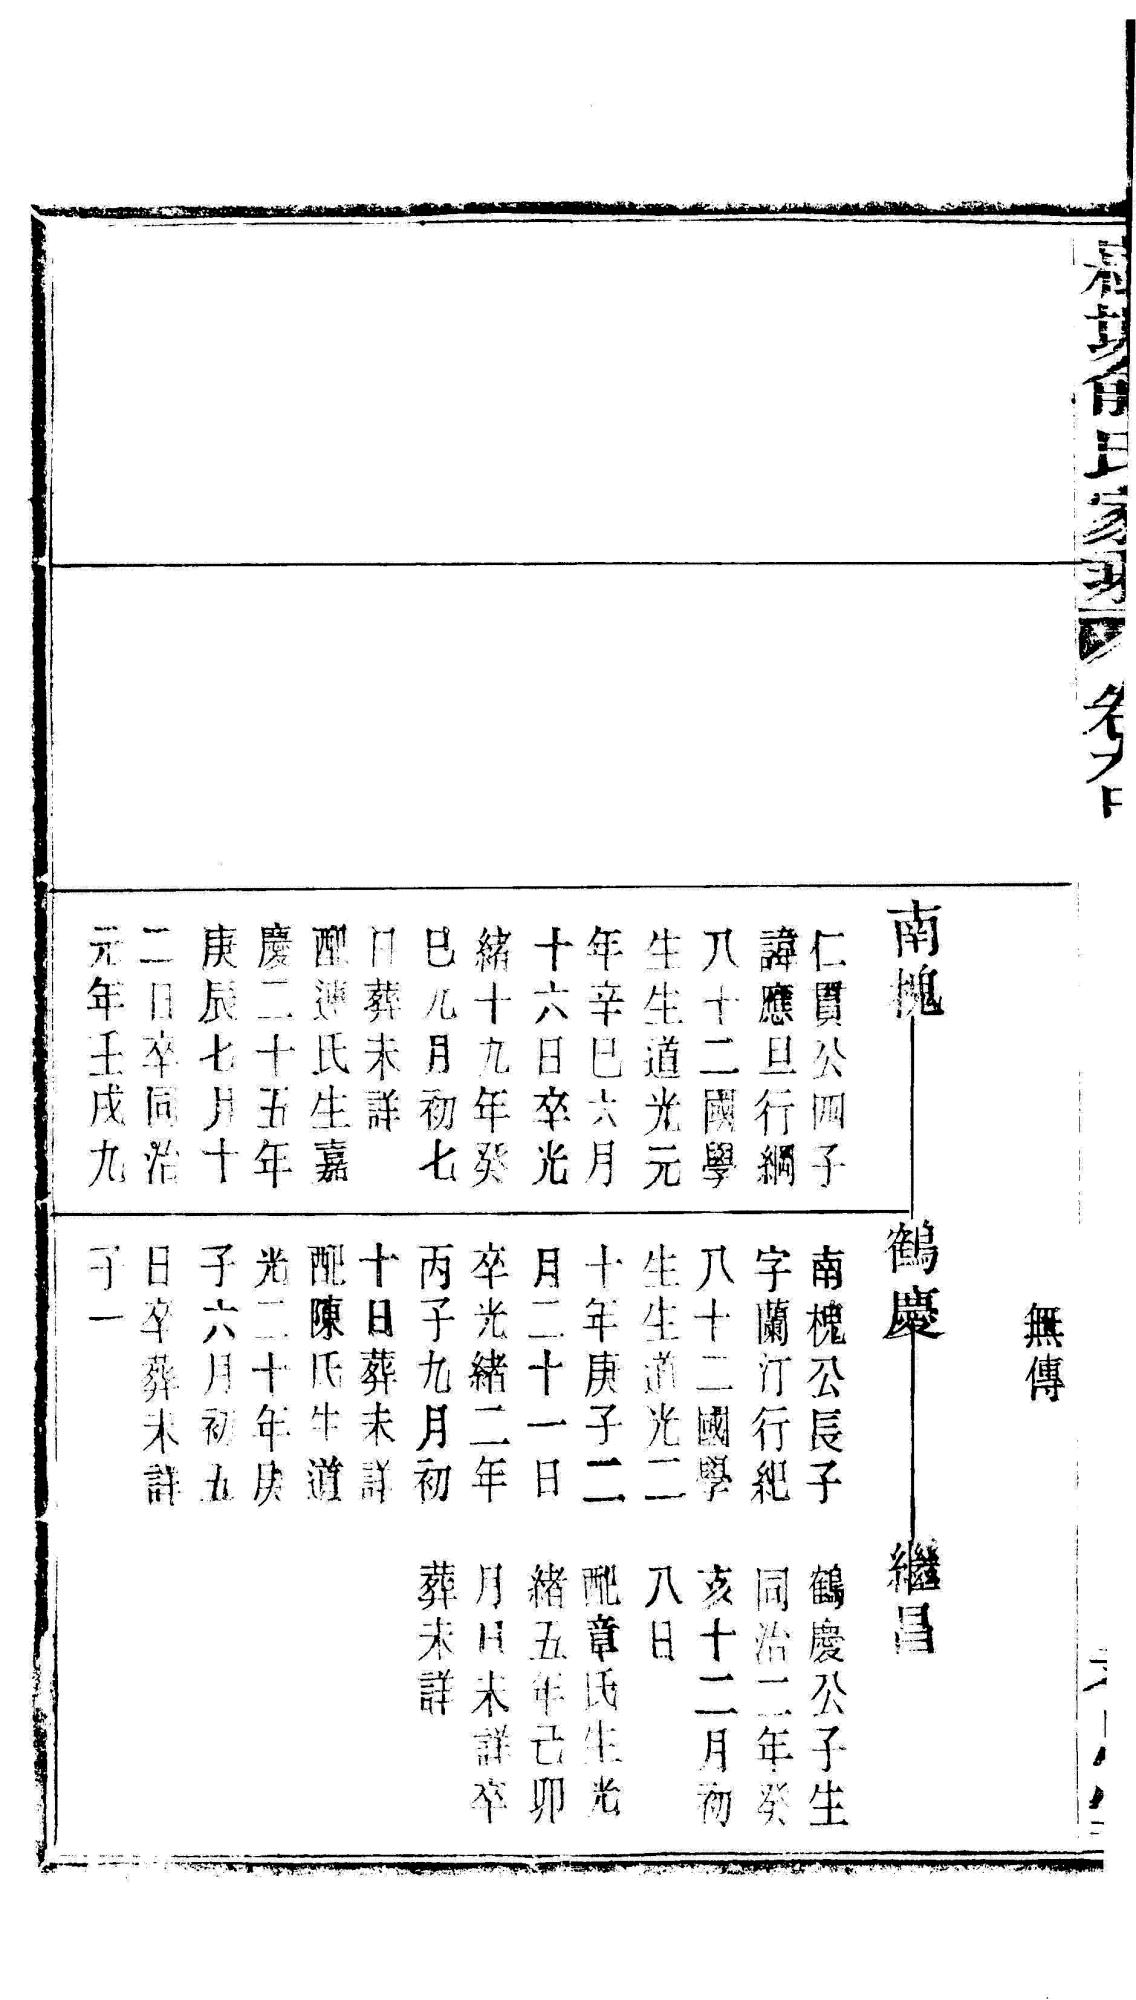 氏家
卷
無傳
南槐
仁貫公四子
諱應旦行綱
八十二國學
生生道光元
年辛巳六月
十六日卒光
緒十九年癸
巳九月初七
日葬未詳
配連氏生嘉
慶二十五年
庚辰七月十
二日卒同治
元年壬戌九
鶴慶
南槐公長子
字蘭汀行紀
八十二國學
生生道光二
十年庚子二
月二十一日
卒光緒二年
丙子九月初
十日葬未詳
配陳氏生道
光二十年庚
子六月初五
日卒葬未詳
子一
繼昌
鶴慶公子生
同治二年癸
亥十二月初
八日
配章氏生光
緒五年己卯
月日未詳卒
葬未詳